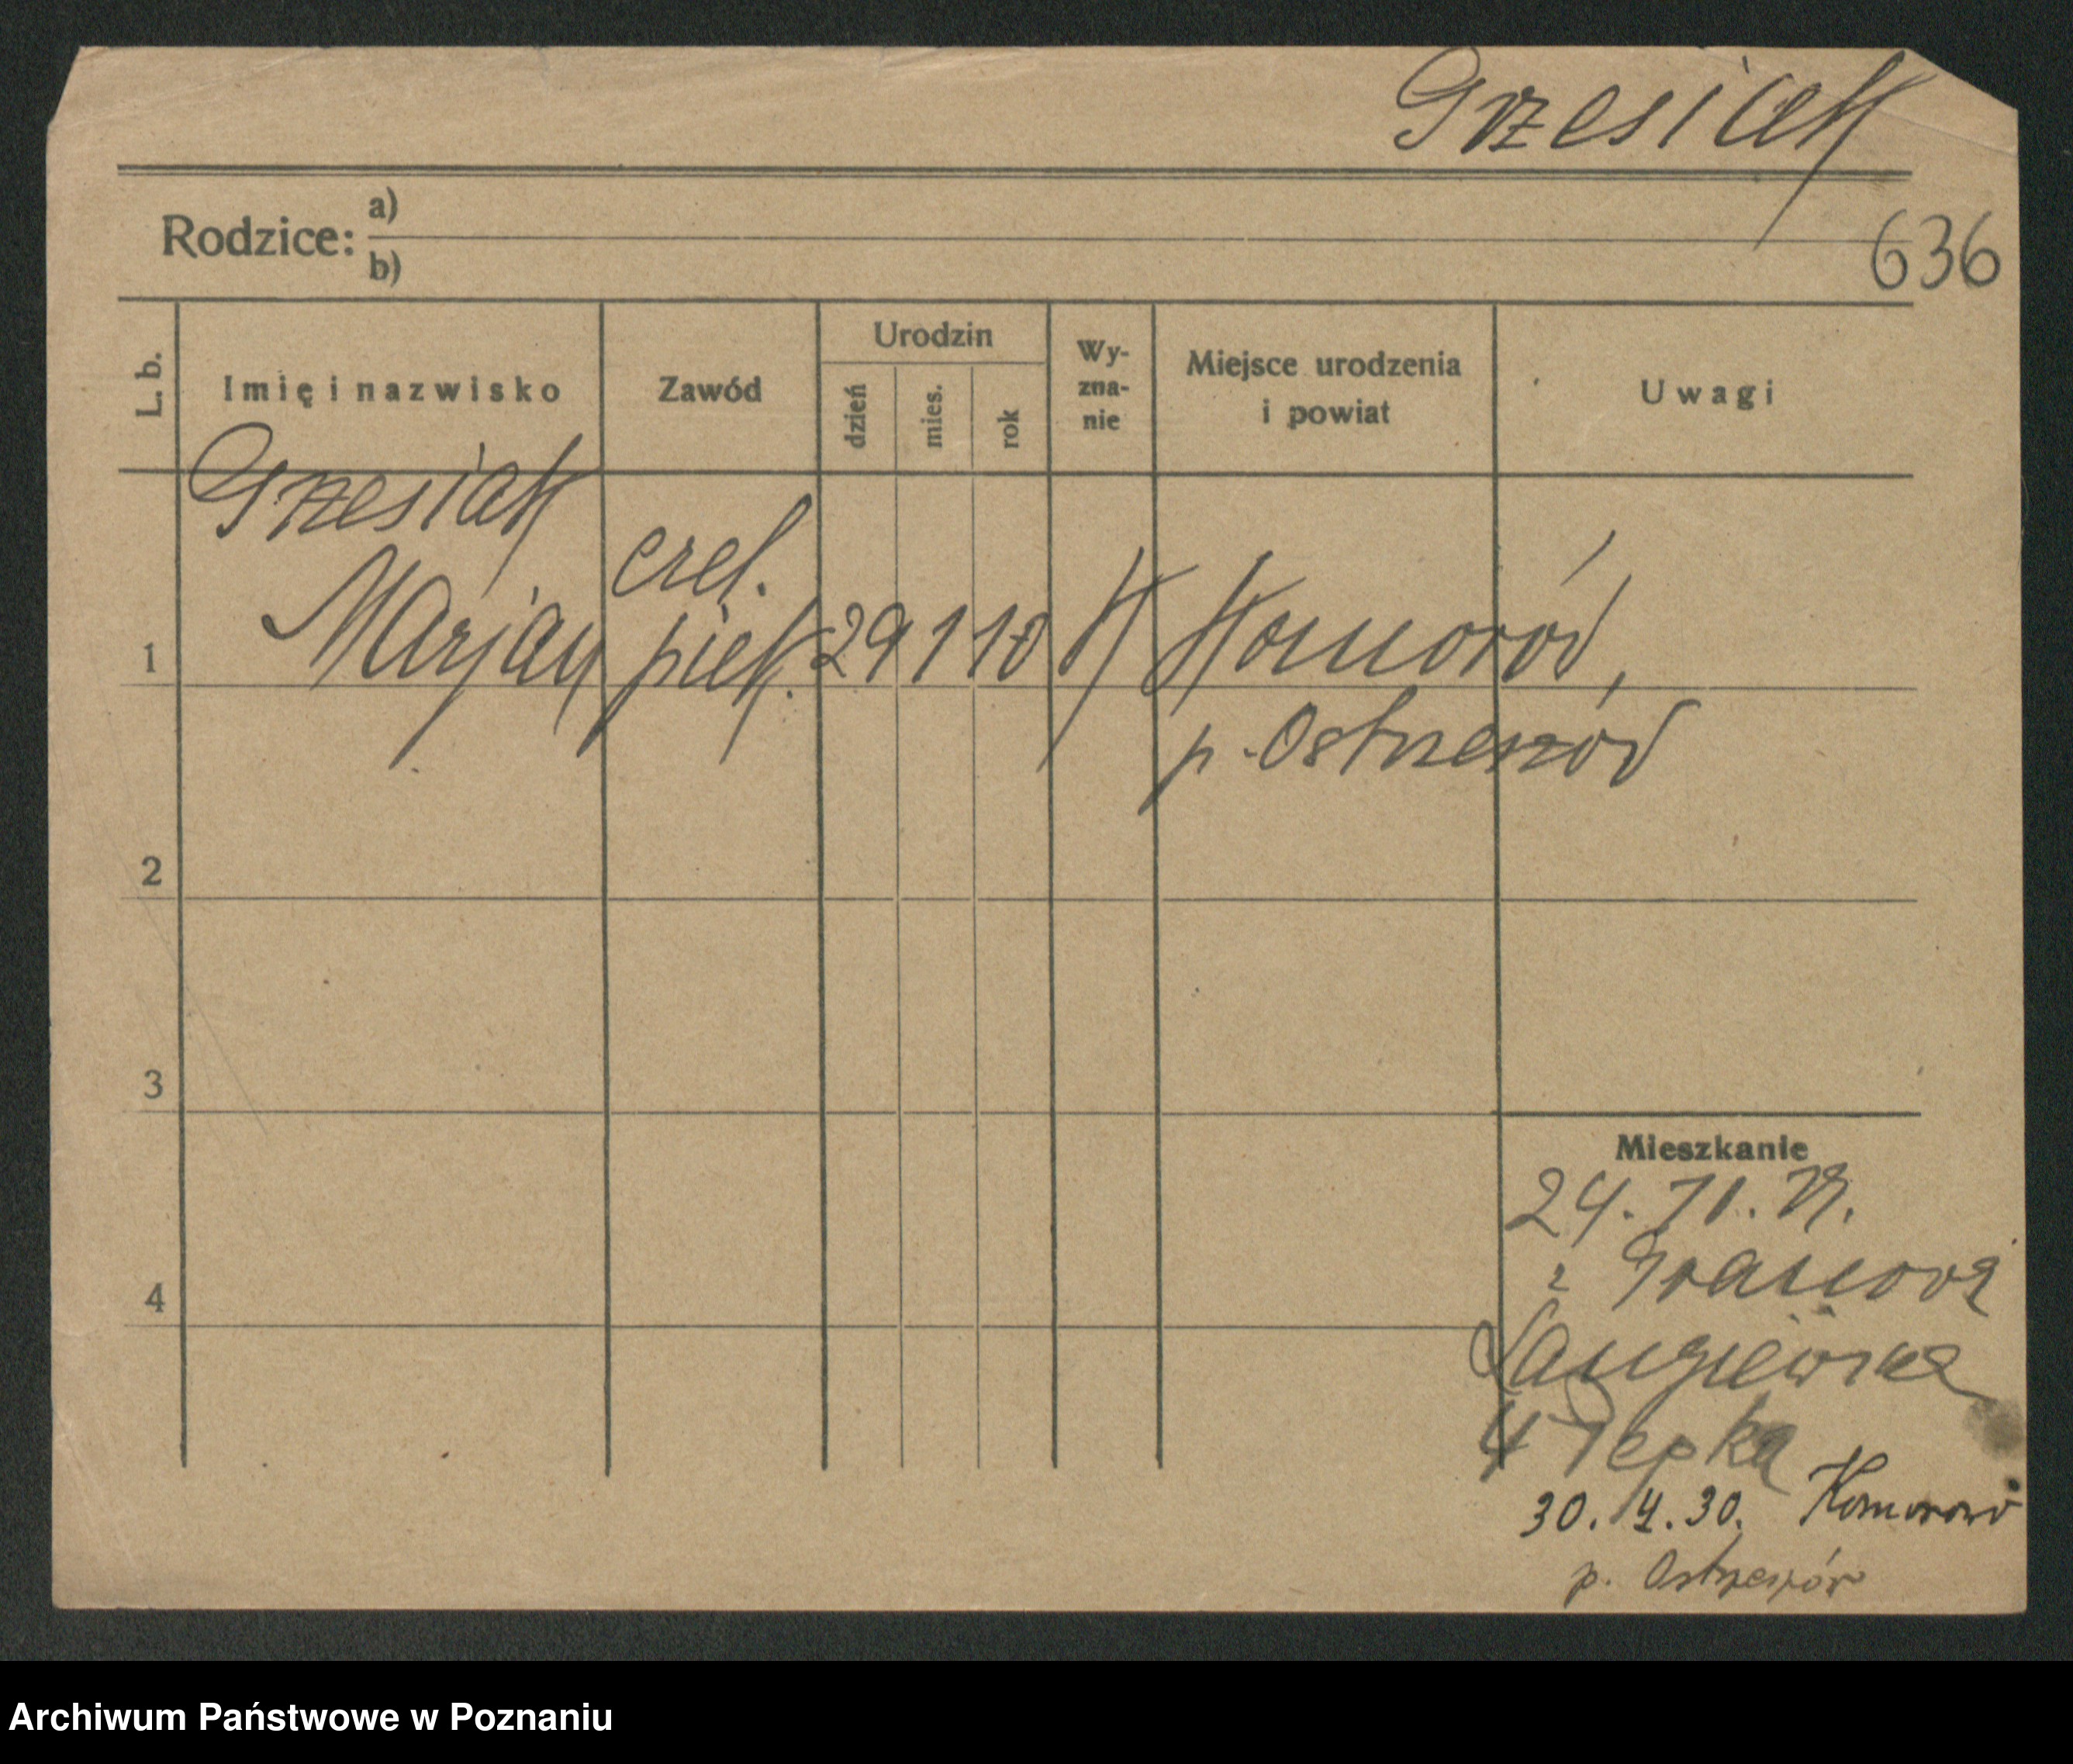 Grzesiak
Rodzice: a)
b)
636
L. b.
Imię i nazwisko
Zawód
Urodzin
dzień
mies.
rok
Wy-
zna-
nie
Miejsce urodzenia
i powiat
Uwagi
Grzesiak
Marjan
czel.
piek.
29 1 10
K
Komorów,
p. Ostrzeszów
1
2
3
4
Mieszkanie
24. 11.
z
4
30. 4. 30. Komorów
p. Ostrzeszów
Archiwum Państwowe w Poznaniu